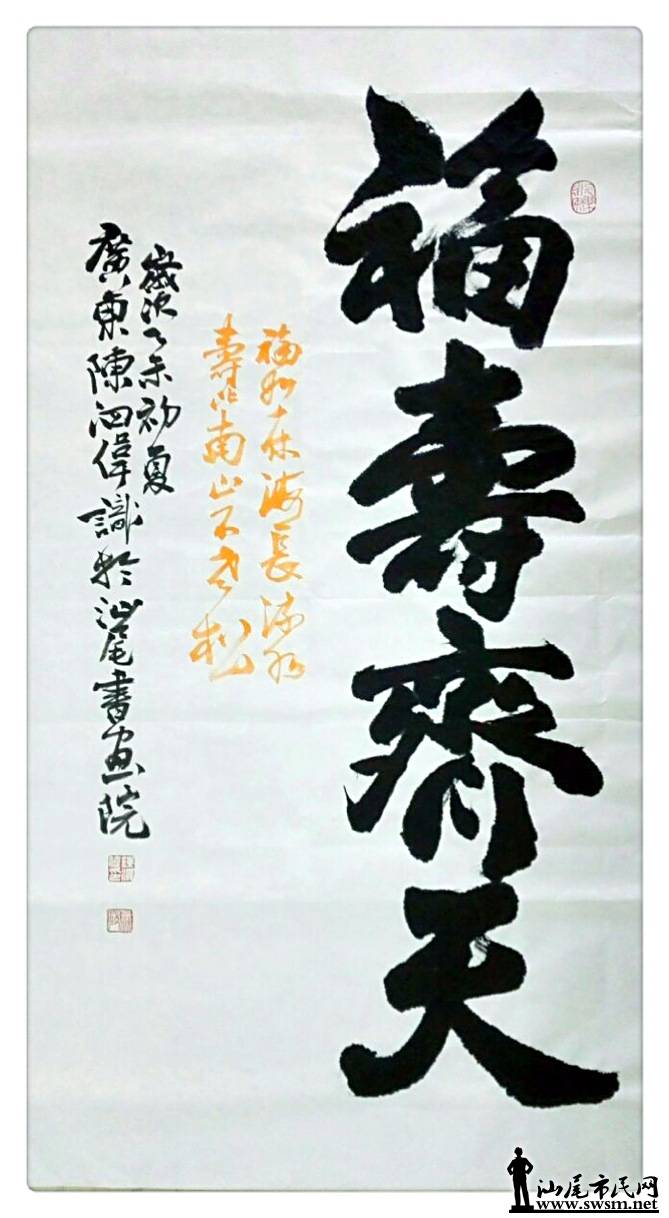 福壽齊天
福如东海長流水
壽比南山不老松
歲次乙未初夏
廣東陳泗偉識於汕尾書画院
汕尾市民网
www.swsm.net